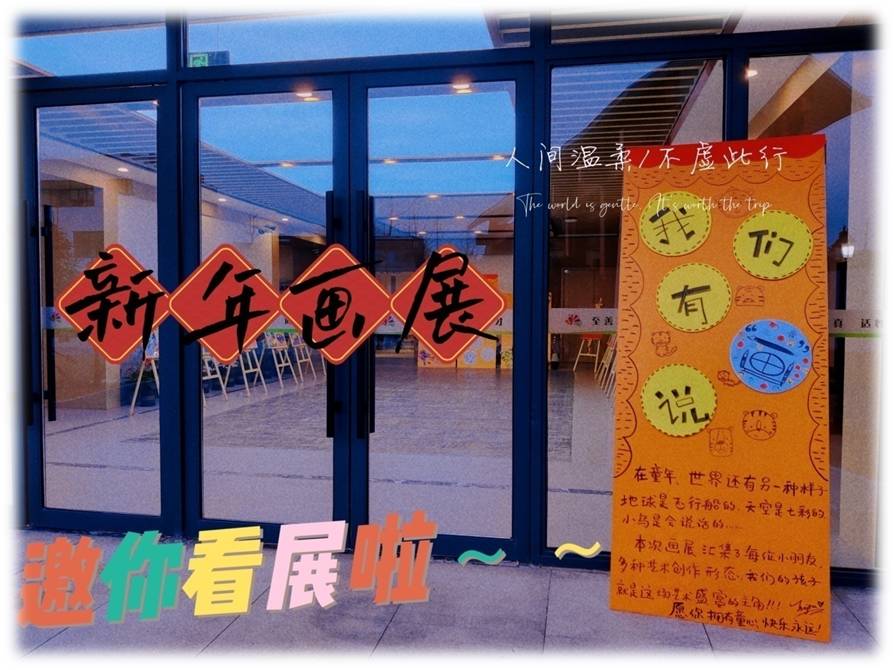 人间温柔/不虚此行
The world is gentle, It's worth the trip
新年画展
至善
真 活
我们有说
在童年,世界还有另一种样子
地球是飞行船的,天空是七彩的
小鸟是会说话的……
本次画展汇集了每位小朋友
多种艺术创作形态,我们的孩子
就是这场艺术盛宴的主角!!!
愿你拥有童心,快乐永远!
邀你看展啦~~